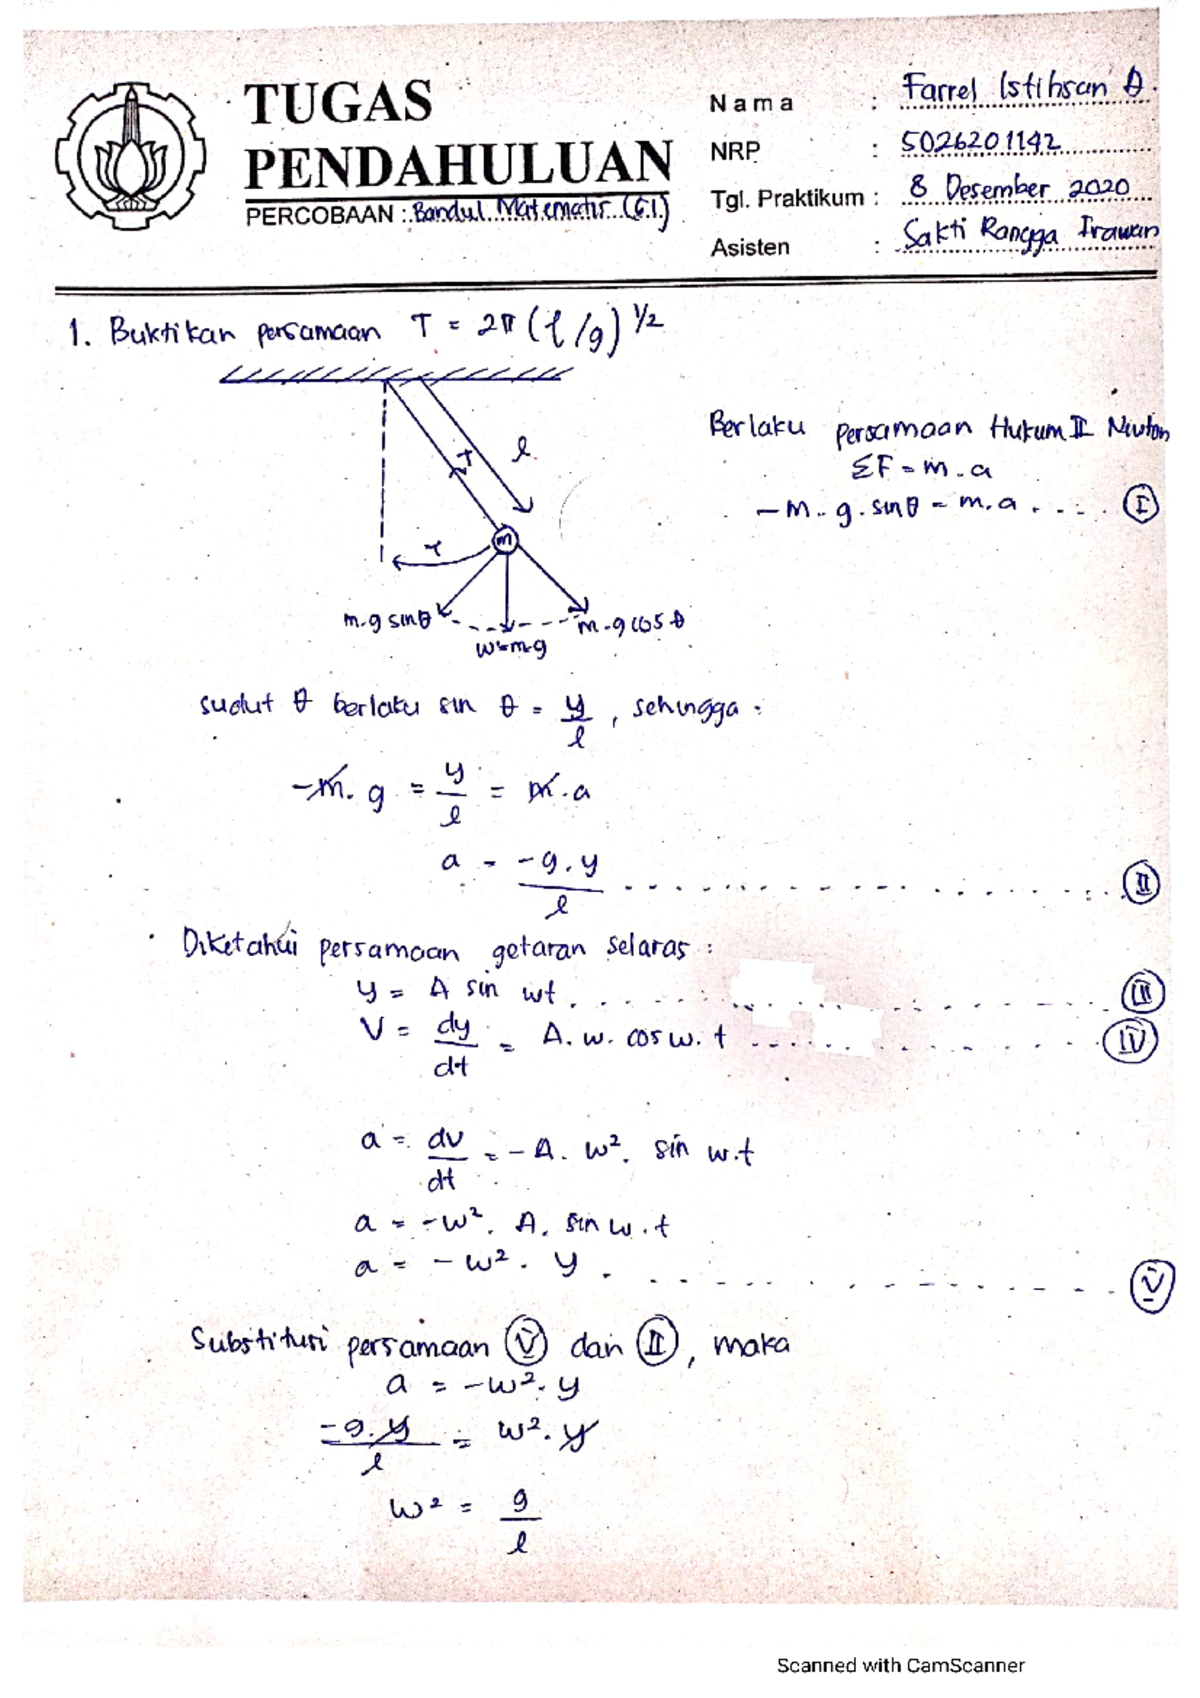 TUGAS
PENDAHULUAN
PERCOBAAN : Bandul Matematis (G.1)
Nama : Farrel Istihsan A.
NRP : 5026201142
Tgl. Praktikum : 8 Desember 2020
Asisten : Sakti Rangga Irawan
1. Buktikan persamaan T = 2π (l/g)^1/2
l
T
m
r
m.g sinθ
w=m.g
m.g cos θ
Berlaku persamaan Hukum II Newton
ΣF = m.a
-m.g.sinθ = m.a ..... (I)
sudut θ berlaku sin θ = y/l, sehingga :
-m.g = y/l = m.a
a = -g.y/l ..... (II)
Diketahui persamaan getaran selaras :
y = A sin wt ..... (III)
V = dy/dt = A.w.cos w.t ..... (IV)
a = dv/dt = -A.w². sin w.t
a = -w². A. sin w.t
a = -w². y ..... (V)
Substitusi persamaan (V) dan (II), maka
a = -w². y
-g.y/l = w². y
w² = g/l
Scanned with CamScanner